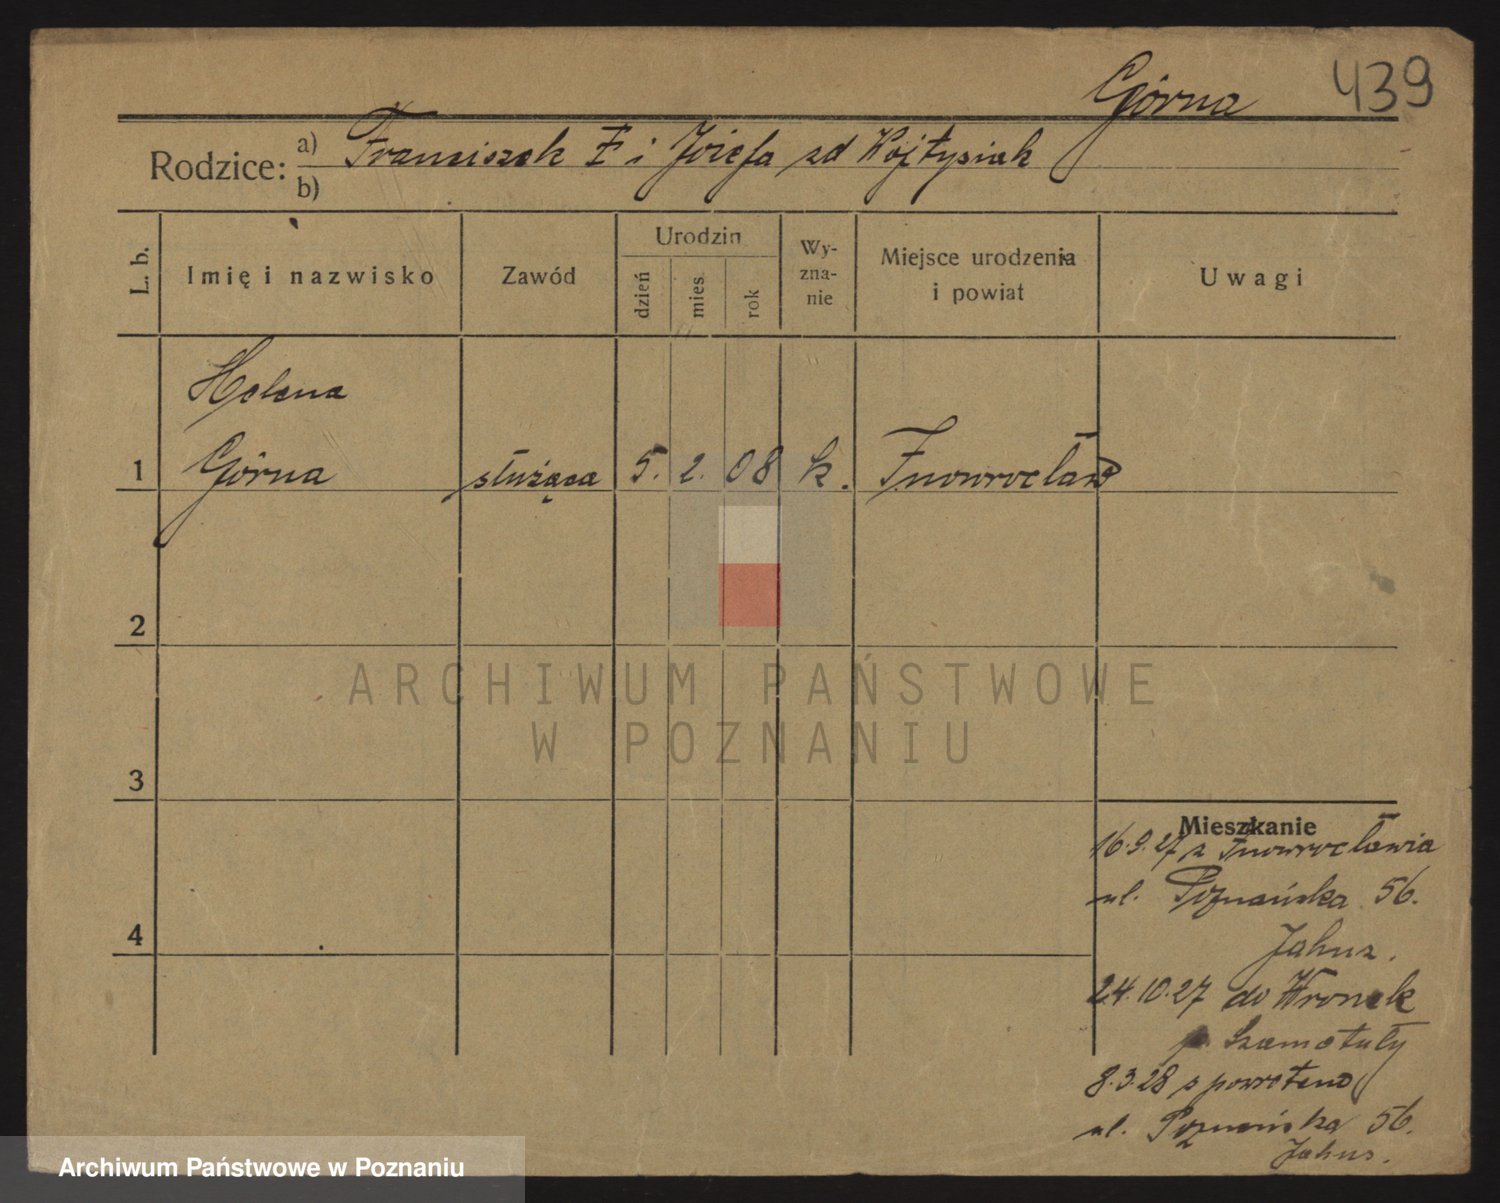 Górna 439
Rodzice: a) Franciszek i Józefa zd Wojtysiak
b)
L. b. Imię i nazwisko Zawód Urodzin dzień mies rok Wy-zna-nie Miejsce urodzenia i powiat Uwagi
Helena
1 Górna służąca 5. 2. 08 k. Inowrocław
2
ARCHIWUM PAŃSTWOWE
W POZNANIU
3
Mieszkanie
16.9.27 z Inowrocławia
ul. Poznańska 56.
4
24.10.27 do Wronek
p. Szamotuły
8.3.28 z powrotem
ul. Poznańska 56.
Archiwum Państwowe w Poznaniu